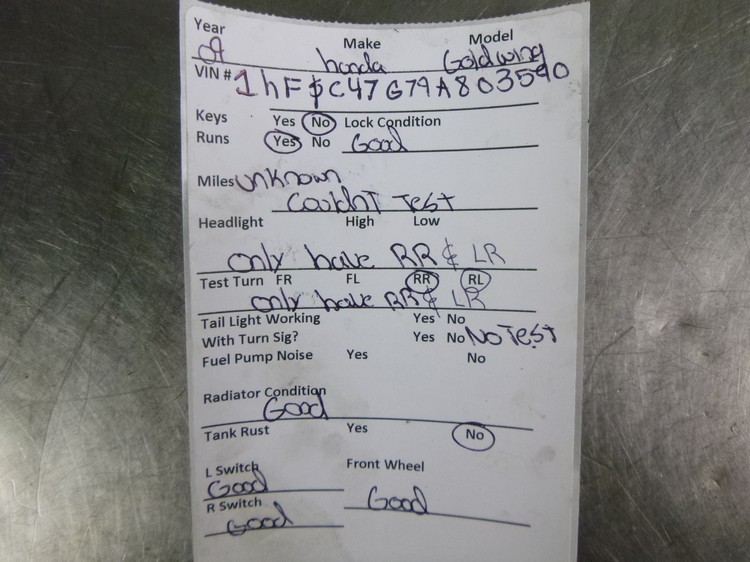 Year Make Model
09 honda Goldwing
VIN # 1hFSC47G79A803590
Keys Yes No Lock Condition
Runs Yes No Good
Miles unknown
Couldn't Test
Headlight High Low
only have RR & LR
Test Turn FR FL RR RL
only have RR & LR
Tail Light Working Yes No
With Turn Sig? Yes No No Test
Fuel Pump Noise Yes No
Radiator Condition
Good
Tank Rust Yes No
L Switch Front Wheel
Good
R Switch Good
Good